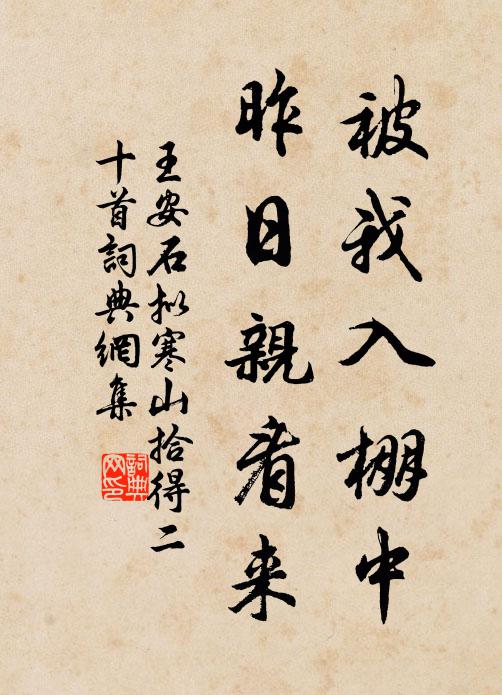 被我入棚中
昨日親看来
王安石拟寒山拾得二
十首詞典網集
詞典
网印